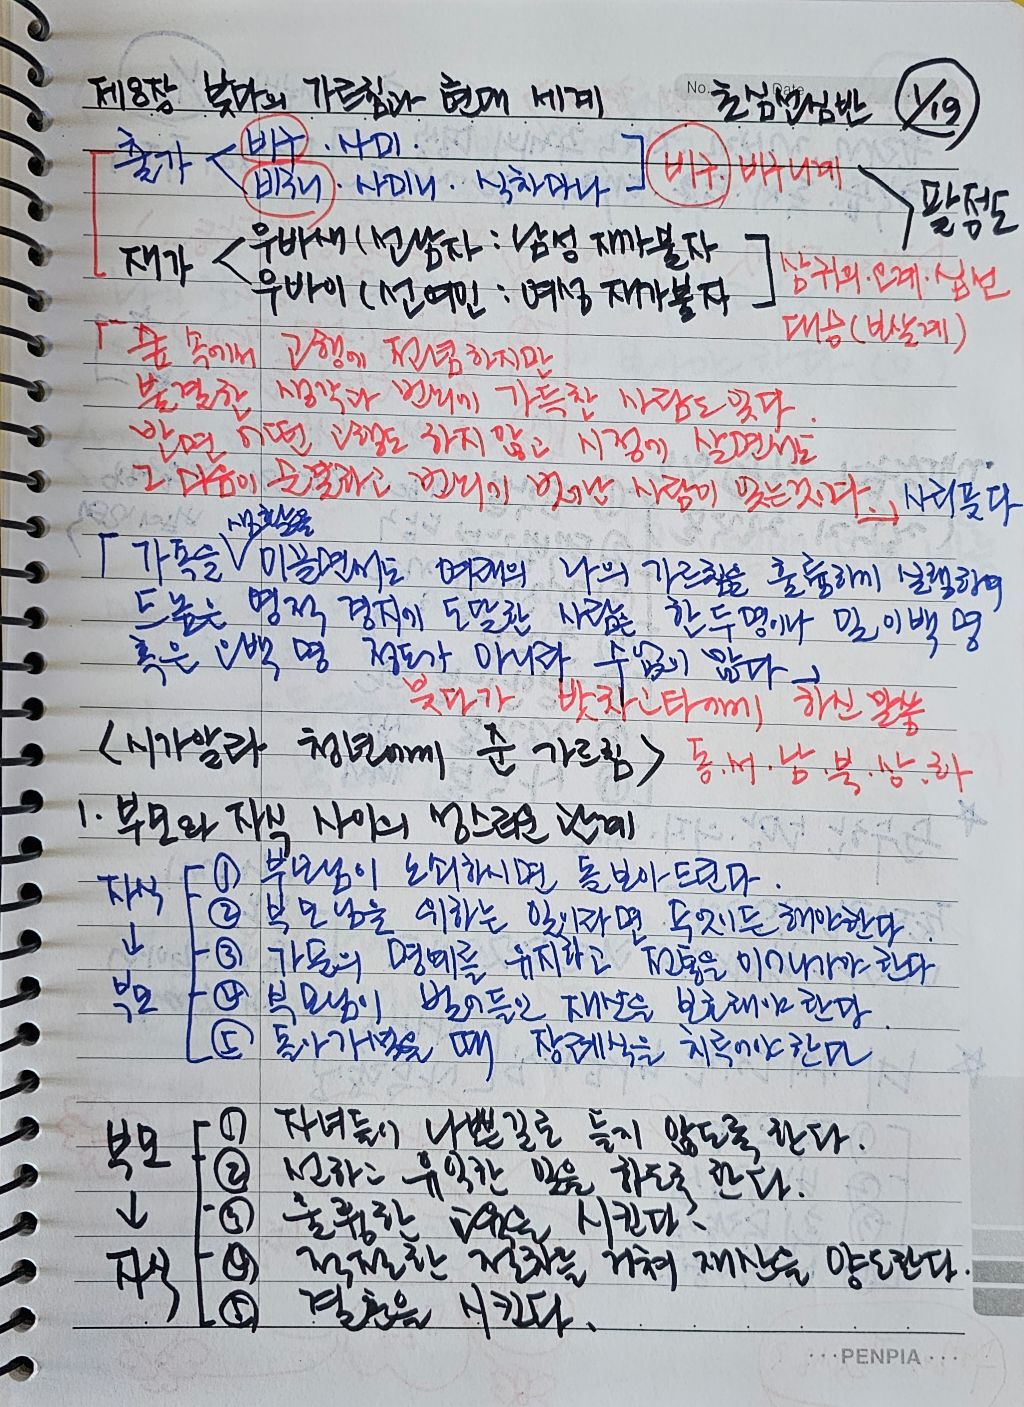 제8장 붓다의 가르침과 현대 세계 초심선심반 1/19
No. Date
출가 비구 · 사미 ·
비구니 · 사미니 · 식차마나
비구 · 비구니계
팔정도
재가 우바새 (선남자 : 남성 재가불자
우바이 (선여인 : 여성 재가불자
삼귀의 · 오계 · 십선
대승 (보살계)
「숲 속에서 고행에 전념하지만
불결한 생각과 번뇌에 가득찬 사람도 있다.
반면 어떤 고행도 하지 않고 시정에 살면서도
그 마음이 순결하고 번뇌에 벗어난 사람이 있는것이다.」 사리풋다
「가족을 생활을 이끌면서도 여래의 나의 가르침을 훌륭하게 실행하여
드높은 영적 경지에 도달한 사람은 한두명이나 일이백 명
혹은 오백 명 정도가 아니라 수없이 많다」
붓다가 밧차고타에게 하신 말씀
<시가알라 청년에게 준 가르침> 동·서·남·북·상·하
1. 부모와 자식 사이의 성스러운 관계
자식 ↓ 부모
① 부모님이 노쇠하시면 돌보아드린다.
② 부모님을 위하는 일이라면 무엇이든 해야한다.
③ 가문의 명예를 유지하고 전통을 이어나가야 한다
④ 부모님이 벌어들인 재산을 보호해야 한다.
⑤ 돌아가셨을 때 장례식을 치루어야 한다
부모 ↓ 자식
① 자녀들이 나쁜길로 들지 않도록 한다.
② 선하고 유익한 일을 하도록 한다.
③ 훌륭한 교육을 시킨다.
④ 적절한 절차를 거쳐 재산을 양도한다.
⑤ 결혼을 시킨다.
···PENPIA···